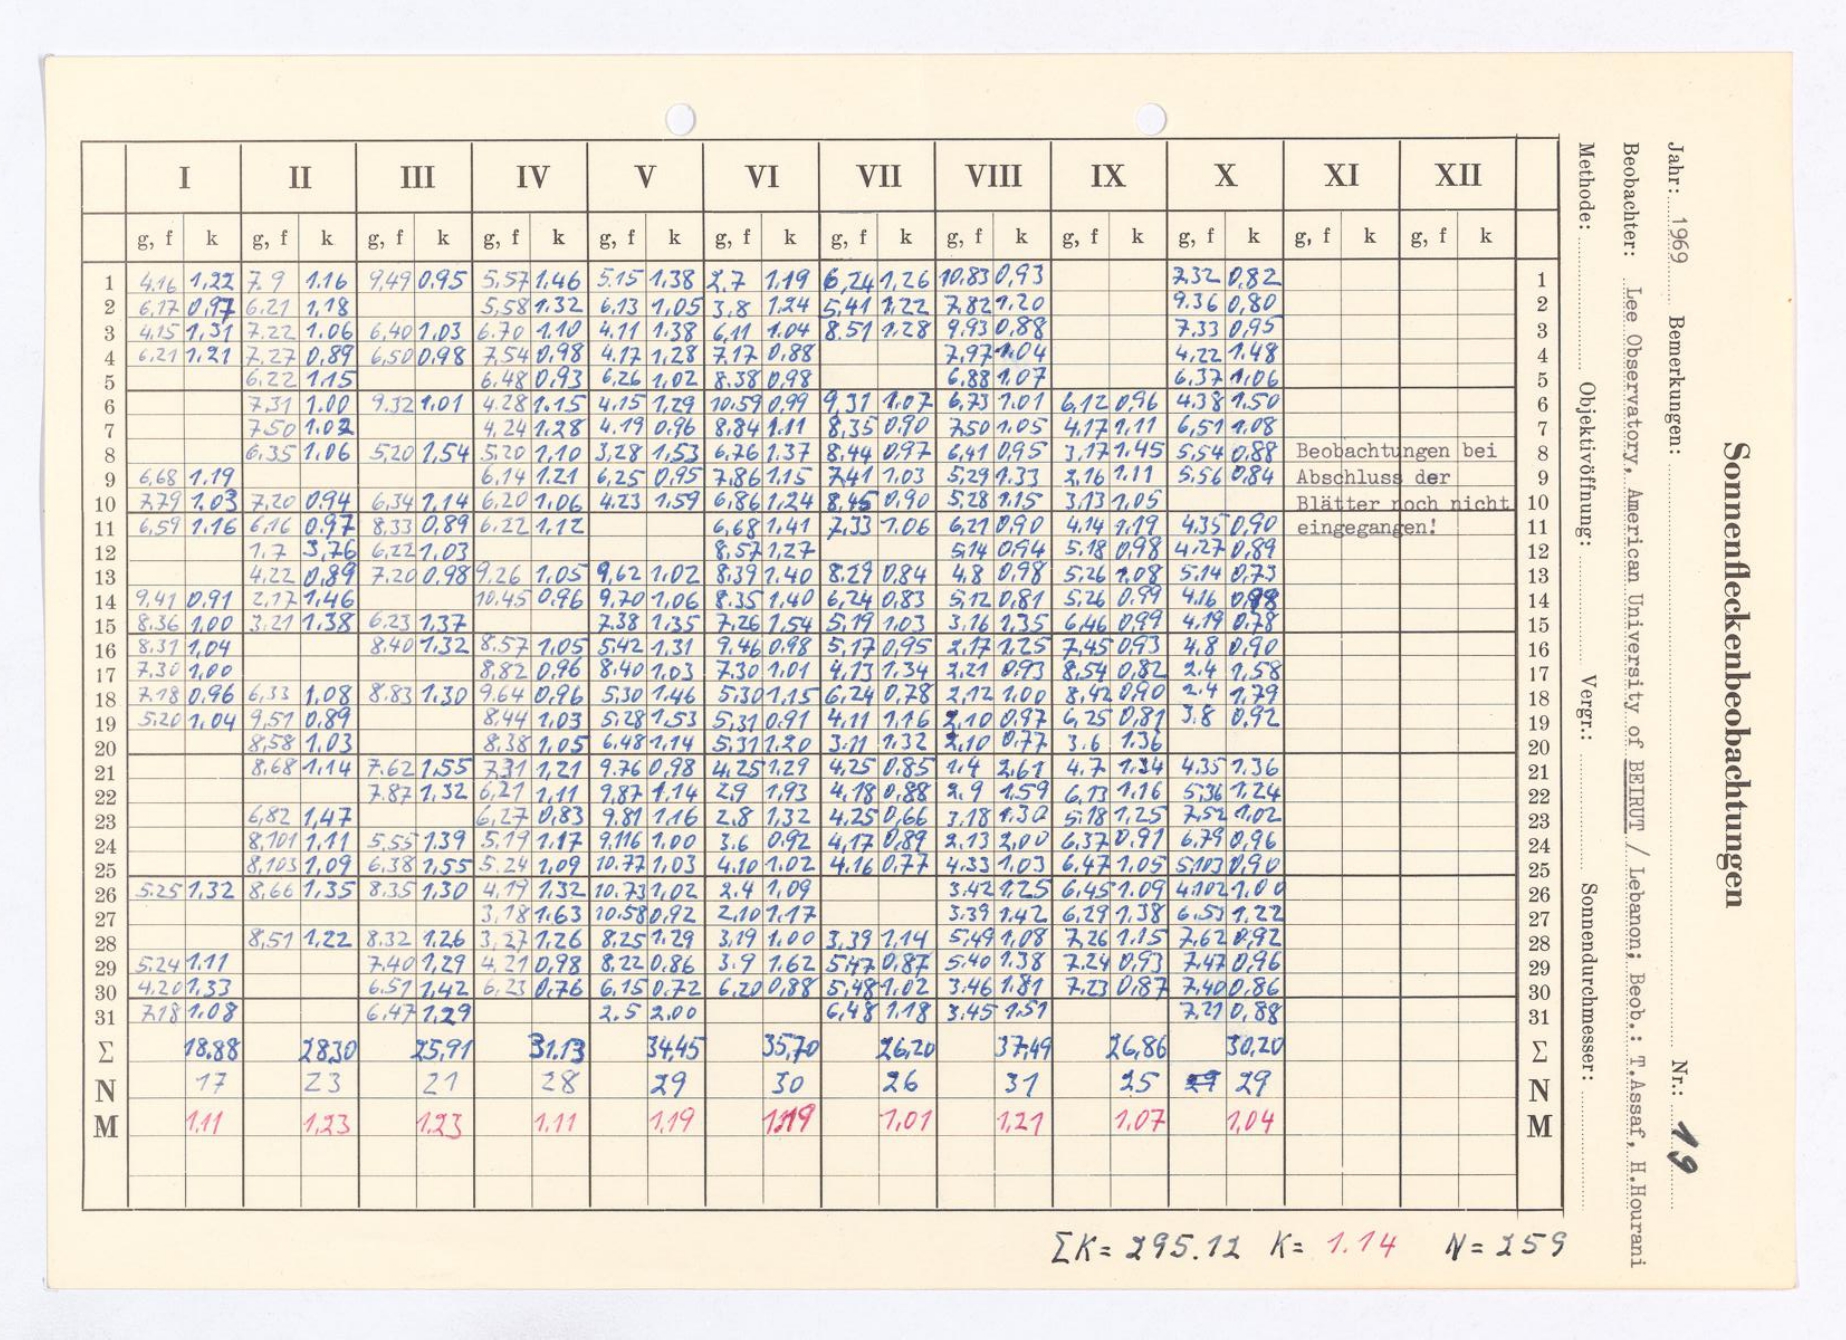 Sonnenfleckenbeobachtungen
Jahr: 1969 Bemerkungen: Nr.: 19
Beobachter: Lee Observatory, American University of BEIRUT / Lebanon; Beob.: T.Assaf, H.Hourani
Methode: Objektivöffnung: Vergr.: Sonnendurchmesser:
I II III IV V VI VII VIII IX X XI XII
g, f k g, f k g, f k g, f k g, f k g, f k g, f k g, f k g, f k g, f k g, f k g, f k
1 4.16 1,22 7.9 1.16 9,49 0.95 5,57 1.46 5.15 1,38 2.7 1.19 6,24 1,26 10.83 0,93 7.32 0,82 1
2 6,17 0,97 6.21 1,18 5,58 1.32 6,13 1,05 3,8 1.24 5,41 1,22 7,82 1,20 9.36 0,80 2
3 4.15 1,31 7.22 1.06 6,40 1,03 6.70 1,10 4.11 1,38 6,11 1.04 8.51 1.28 9,93 0,88 7.33 0,95 3
4 6,21 1,21 7.27 0,89 6,50 0,98 7,54 0,98 4.17 1,28 7.17 0,88 7,97 1.04 4,22 1.48 4
5 6,22 1,15 6,48 0,93 6,26 1,02 8.38 0,98 6.88 1,07 6,37 1,06 5
6 7.31 1.00 9.32 1.01 4.28 1.15 4.15 1,29 10.59 0,99 9,31 1.07 6,73 1.01 6,12 0,96 4.38 1.50 6
7 7.50 1.02 4,24 1.28 4.19 0.96 8,84 1.11 8,35 0,90 7,50 1.05 4,17 1,11 6,51 1.08 7
8 6.35 1,06 5,20 1,54 5.20 1,10 3,28 1,53 6,76 1.37 8,44 0,97 6,41 0,95 3,17 1.45 5,54 0,88 Beobachtungen bei 8
9 6,68 1.19 6,14 1.21 6,25 0,95 7,86 1.15 7,41 1,03 5,29 1.33 2,16 1.11 5,56 0,84 Abschluss der 9
10 7.79 1.03 7,20 0,94 6,34 1,14 6,20 1,06 4.23 1.59 6,86 1,24 8,45 0,90 5,28 1.15 3,13 1,05 Blätter noch nicht 10
11 6,59 1.16 6,16 0,97 8,33 0,89 6,22 1,12 6,68 1,41 7,33 1.06 6,21 0,90 4,14 1,19 4,35 0,90 eingegangen! 11
12 1,7 3,76 6,22 1,03 8,57 1,27 5,14 0,94 5,18 0,98 4,27 0,89 12
13 4,22 0,89 7.20 0,98 9,26 1,05 9,62 1,02 8,39 1.40 8.29 0,84 4,8 0,98 5,26 1,08 5,14 0,73 13
14 9,41 0,91 2,17 1,46 10.45 0,96 9.70 1,06 8.35 1,40 6,24 0,83 5,12 0,81 5,26 0,99 4.16 0,98 14
15 8.36 1,00 3.21 1,38 6.23 1,37 7.38 1.35 7,26 1,54 5,19 1.03 3,16 1,35 6,46 0,99 4.19 0,78 15
16 8.31 1,04 8.40 1,32 8.57 1.05 5,42 1,31 9,46 0,98 5,17 0,95 2,17 1,25 7,45 0,93 4.8 0,90 16
17 7.30 1,00 8,82 0,96 8.40 1,03 7.30 1.01 4,13 1.34 2,21 0,93 8,54 0,82 2.4 1,58 17
18 7,18 0,96 6,33 1,08 8.83 1,30 9.64 0,96 5,30 1.46 5,30 1,15 6,24 0,78 2,12 1,00 8,42 0,90 2.4 1,79 18
19 5,20 1,04 9,51 0,89 8,44 1.03 5,28 1,53 5,31 0,91 4,11 1,16 2,10 0,97 6,25 0,81 3.8 0,92 19
20 8,58 1,03 8,38 1,05 6,48 1,14 5,31 1.20 3,11 1,32 2,10 0,77 3.6 1.36 20
21 8,68 1,14 7.62 1,55 7,31 1,21 9.76 0,98 4,25 1.29 4,25 0,85 1.4 2,61 4.7 1.34 4.35 1.36 21
22 7.87 1,32 6,21 1,11 9,87 1.14 2.9 1,93 4,18 0,88 2.9 1.59 6,13 1.16 5,36 1,24 22
23 6,82 1,47 6,27 0,83 9.81 1,16 2.8 1,32 4,25 0,66 3,18 1.30 5,18 1,25 7,52 1,02 23
24 8,101 1,11 5,55 1.39 5.19 1.17 9,116 1.00 3.6 0.92 4,17 0,89 2.13 2,00 6,37 0,91 6,79 0,96 24
25 8,103 1,09 6,38 1,55 5.24 1,09 10.77 1,03 4.10 1.02 4.16 0,77 4.33 1.03 6,47 1.05 5,103 0,90 25
26 5.25 1,32 8,66 1.35 8.35 1,30 4,19 1.32 10.73 1,02 2.4 1,09 3.42 1,25 6,45 1.09 4.102 1.00 26
27 3,18 1.63 10.58 0,92 2,10 1,17 3.39 1.42 6,29 1,38 6,53 1,22 27
28 8,51 1,22 8.32 1.26 3,27 1,26 8.25 1.29 3,19 1.00 3,39 1,14 5,49 1,08 7,26 1.15 7,62 0,92 28
29 5.24 1,11 7.40 1,29 4,21 0,98 8,22 0.86 3.9 1.62 5,47 0,87 5.40 1.38 7.24 0,93 7,47 0,96 29
30 4.20 1,33 6,51 1,42 6,23 0,76 6,15 0.72 6,20 0,88 5,48 1,02 3.46 1.81 7.23 0,87 7,40 0,86 30
31 7,18 1.08 6,47 1,29 2.5 2.00 6,48 1.18 3.45 1.51 7,21 0,88 31
Σ 18.88 28,30 25,91 31.13 34,45 35,70 26,20 37,49 26,86 30,20 Σ
N 17 23 21 28 29 30 26 31 25 29 N
M 1,11 1,23 1,23 1,11 1,19 1,19 1,01 1,21 1.07 1,04 M
ΣK = 295.12 K = 1.14 N = 259